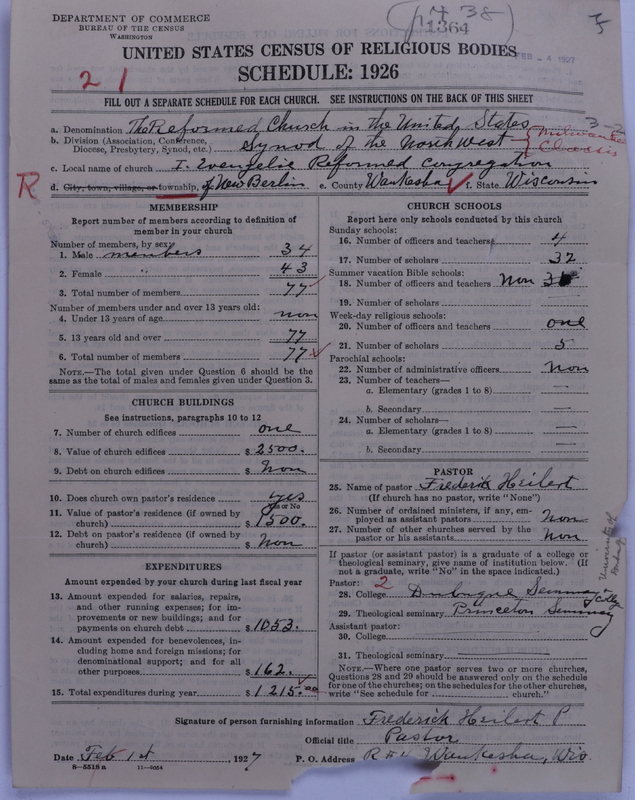 DEPARTMENT OF COMMERCE
BUREAU OF THE CENSUS
WASHINGTON
1438
1364
FEB -4 1927
UNITED STATES CENSUS OF RELIGIOUS BODIES
SCHEDULE: 1926
21
FILL OUT A SEPARATE SCHEDULE FOR EACH CHURCH. SEE INSTRUCTIONS ON THE BACK OF THIS SHEET
a. Denomination The Reformed Church in the United States
b. Division (Association, Conference, Diocese, Presbytery, Synod, etc.) Synod of the Northwest Milwaukee Classis
c. Local name of church I. Evangelic Reformed Congregation
R d. City, town, village, or township, of New Berlin e. County Waukesha f. State Wisconsin
MEMBERSHIP
Report number of members according to definition of member in your church
Number of members, by sex:
1. Male members 34
2. Female " 43
3. Total number of members 77
Number of members under and over 13 years old:
4. Under 13 years of age non
5. 13 years old and over 77
6. Total number of members 77
NOTE.—The total given under Question 6 should be the same as the total of males and females given under Question 3.
CHURCH BUILDINGS
See instructions, paragraphs 10 to 12
7. Number of church edifices one
8. Value of church edifices $ 2500.
9. Debt on church edifices $ Non
10. Does church own pastor's residence yes
Yes or No
11. Value of pastor's residence (if owned by church) $ 1500.
12. Debt on pastor's residence (if owned by church) $ Non
EXPENDITURES
Amount expended by your church during last fiscal year
13. Amount expended for salaries, repairs, and other running expenses; for improvements or new buildings; and for payments on church debt $ 1053.
14. Amount expended for benevolences, including home and foreign missions; for denominational support; and for all other purposes $ 162.
15. Total expenditures during year $ 1215.00
CHURCH SCHOOLS
Report here only schools conducted by this church
Sunday schools:
16. Number of officers and teachers 4
17. Number of scholars 32
Summer vacation Bible schools:
18. Number of officers and teachers Non
19. Number of scholars —
Week-day religious schools:
20. Number of officers and teachers one
21. Number of scholars 5
Parochial schools:
22. Number of administrative officers Non
23. Number of teachers—
a. Elementary (grades 1 to 8) —
b. Secondary —
24. Number of scholars—
a. Elementary (grades 1 to 8) —
b. Secondary —
PASTOR
25. Name of pastor Frederick Heilert
(If church has no pastor, write "None")
26. Number of ordained ministers, if any, employed as assistant pastors non
27. Number of other churches served by the pastor or his assistants Non
If pastor (or assistant pastor) is a graduate of a college or theological seminary, give name of institution below. (If not a graduate, write "No" in the space indicated.)
Pastor: 2
28. College Dubuque Seminary College
29. Theological seminary Princeton Seminary
Assistant pastor:
30. College
31. Theological seminary
NOTE.—Where one pastor serves two or more churches, Questions 28 and 29 should be answered only on the schedule for one of the churches; on the schedules for the other churches, write "See schedule for church."
Signature of person furnishing information Frederick Heilert P
Official title Pastor
Date Feb 1st, 1927 P. O. Address Waukesha, Wis
8—5518 a 11—9264